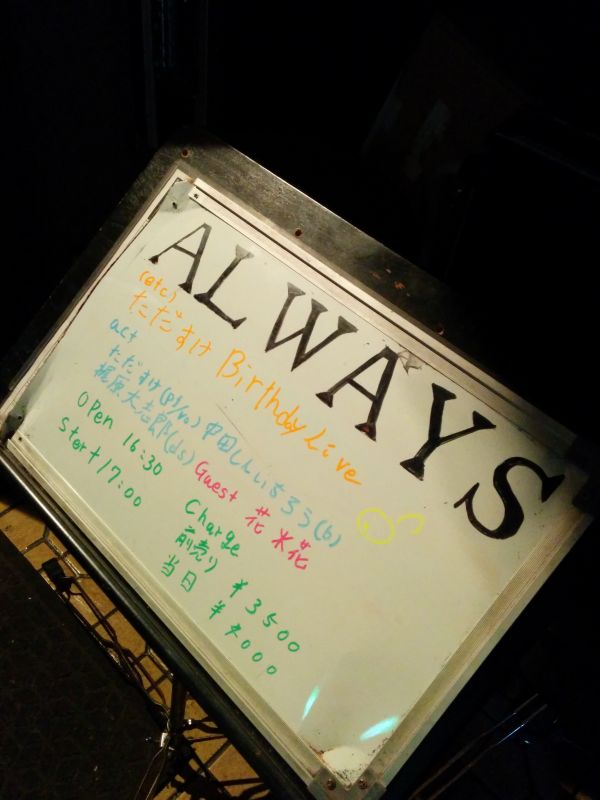 ALWAYS
(etc)
ただすけ Birthday Live
act
ただすけ(pf/vo) 中田しんいちろう(b)
梶原大志郎(ds) Guest 花米花
OPen 16:30
start 17:00
Charge
前売り ¥3500
当日 ¥4000